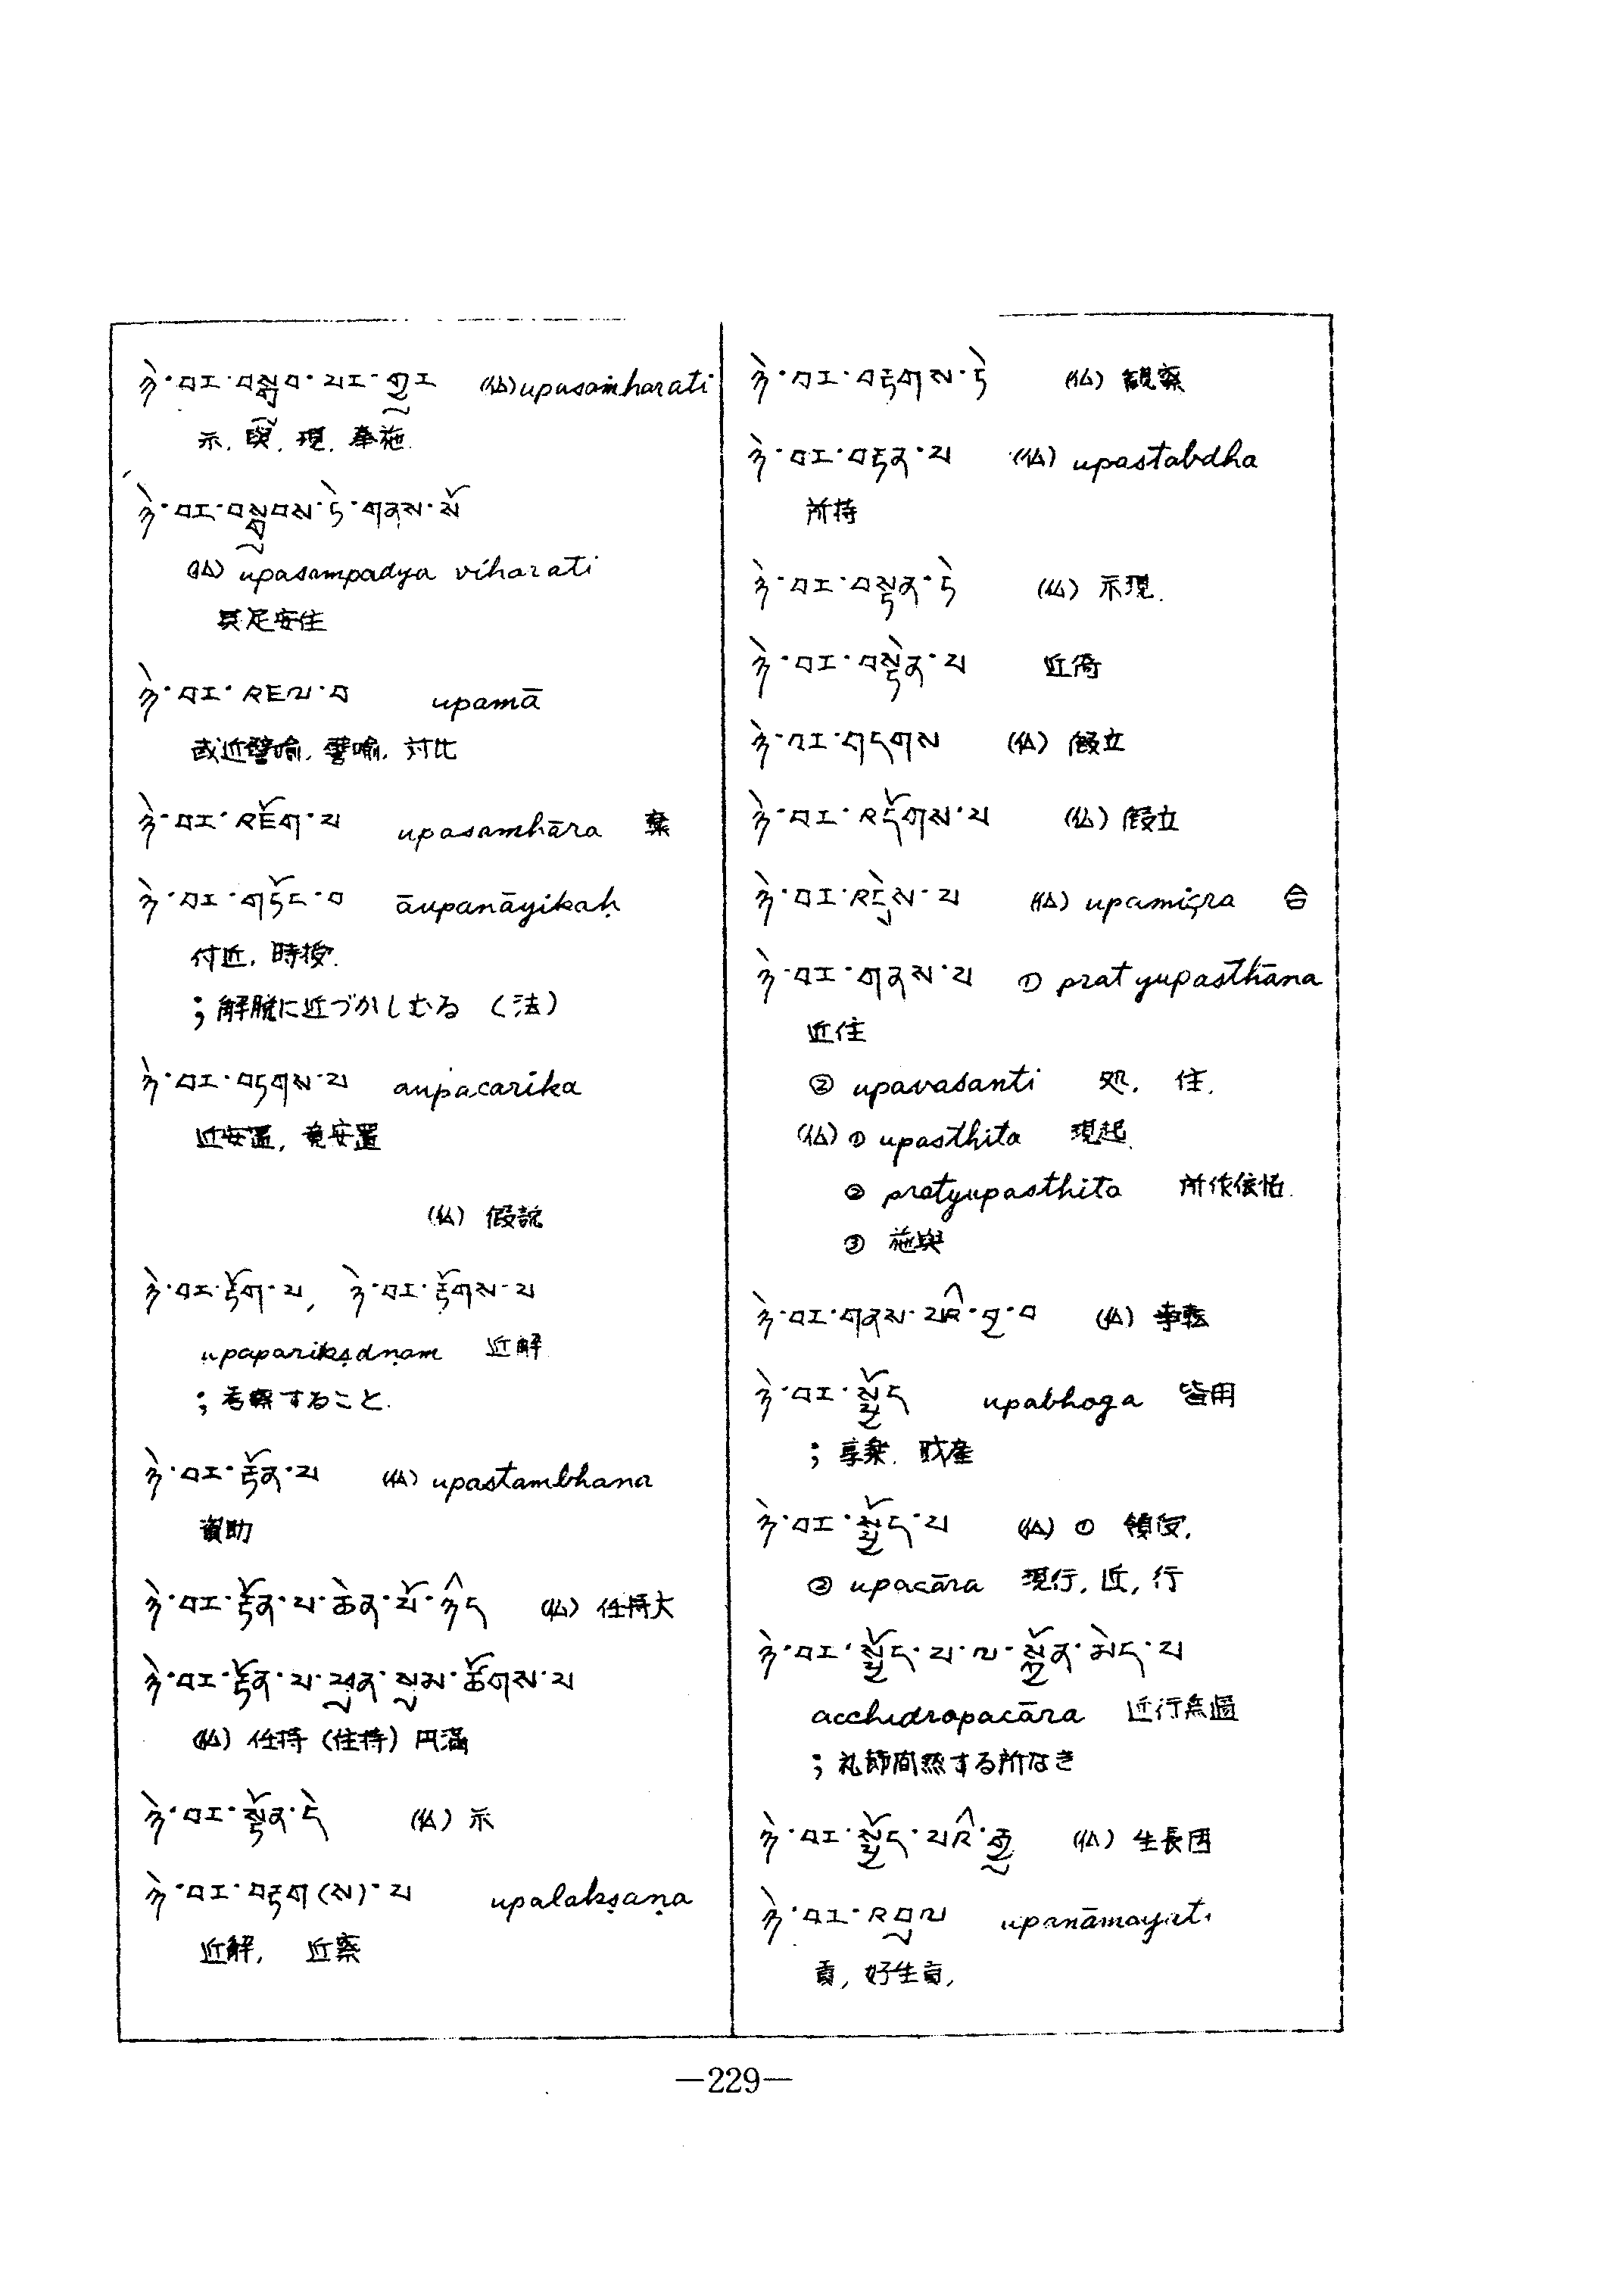 ཉེ་བར་བསྒྲུབ་པར་གྱུར (仏) upasaṁharati
示, 與, 現, 奉施.
ཉེ་བར་བསྒྲུབས་ཏེ་གནས་སོ
(仏) upasampadya viharati
具足安住
ཉེ་བར་འཇལ་བ upamā
或近譬喻, 譬喻, 対比
ཉེ་བར་འཇོག་པ upasamhāra 棄
ཉེ་བར་གཏོང་བ āupanāyikaḥ
付近, 時授.
; 解脱に近づかしむる (法)
ཉེ་བར་བཏགས་པ aupacarika
近安置, 竟安置
(仏) 假説
ཉེ་བར་རྟོག་པ, ཉེ་བར་རྟོགས་པ
upaparikṣdṇam 近解
; 考察すること.
ཉེ་བར་རྟོན་པ (仏) upastambhana
資助
ཉེ་བར་རྟོན་པ་ཆེན་པོ་ཉིད (仏) 任持大
ཉེ་བར་རྟོན་པ་ཕུན་སུམ་ཚོགས་པ
(仏) 任持 (住持) 円満
ཉེ་བར་སྟོན་ཏེ (仏) 示
ཉེ་བར་བརྟག(ས)་པ upalakṣaṇa
近解, 近察
ཉེ་བར་བརྟགས་ཏེ (仏) 観察
ཉེ་བར་བརྟན་པ (仏) upastabdha
所持
ཉེ་བར་བསྟན་ཏེ (仏) 示現.
ཉེ་བར་བསྟེན་པ 近
ཉེ་བར་གདགས (仏) 假立
ཉེ་བར་འདོགས་པ (仏) 假立
ཉེ་བར་འདྲེས་པ (仏) upamiçra 合
ཉེ་བར་གནས་པ ① pratyupasthāna
近住
② upavasanti 処, 住.
(仏) ① upasthita 現起.
② pratyupasthita 所作依怙.
③ 施與
ཉེ་བར་གནས་པའི་བྱ་བ (仏) 事転
ཉེ་བར་སྤྱོད upabhoga 皆用
; 享楽. 財産
ཉེ་བར་སྤྱོད་པ (仏) ① 領受,
② upacāra 現行, 近, 行
ཉེ་བར་སྤྱོད་པ་ལ་སྐྱོན་མེད་པ
acchidropacāra 近行無過
; 礼節間然する所なき
ཉེ་བར་སྤྱོད་པའི་རྒྱུ (仏) 生長因
ཉེ་བར་འབུལ upanāmayati
貢, 好生貢,
—229—